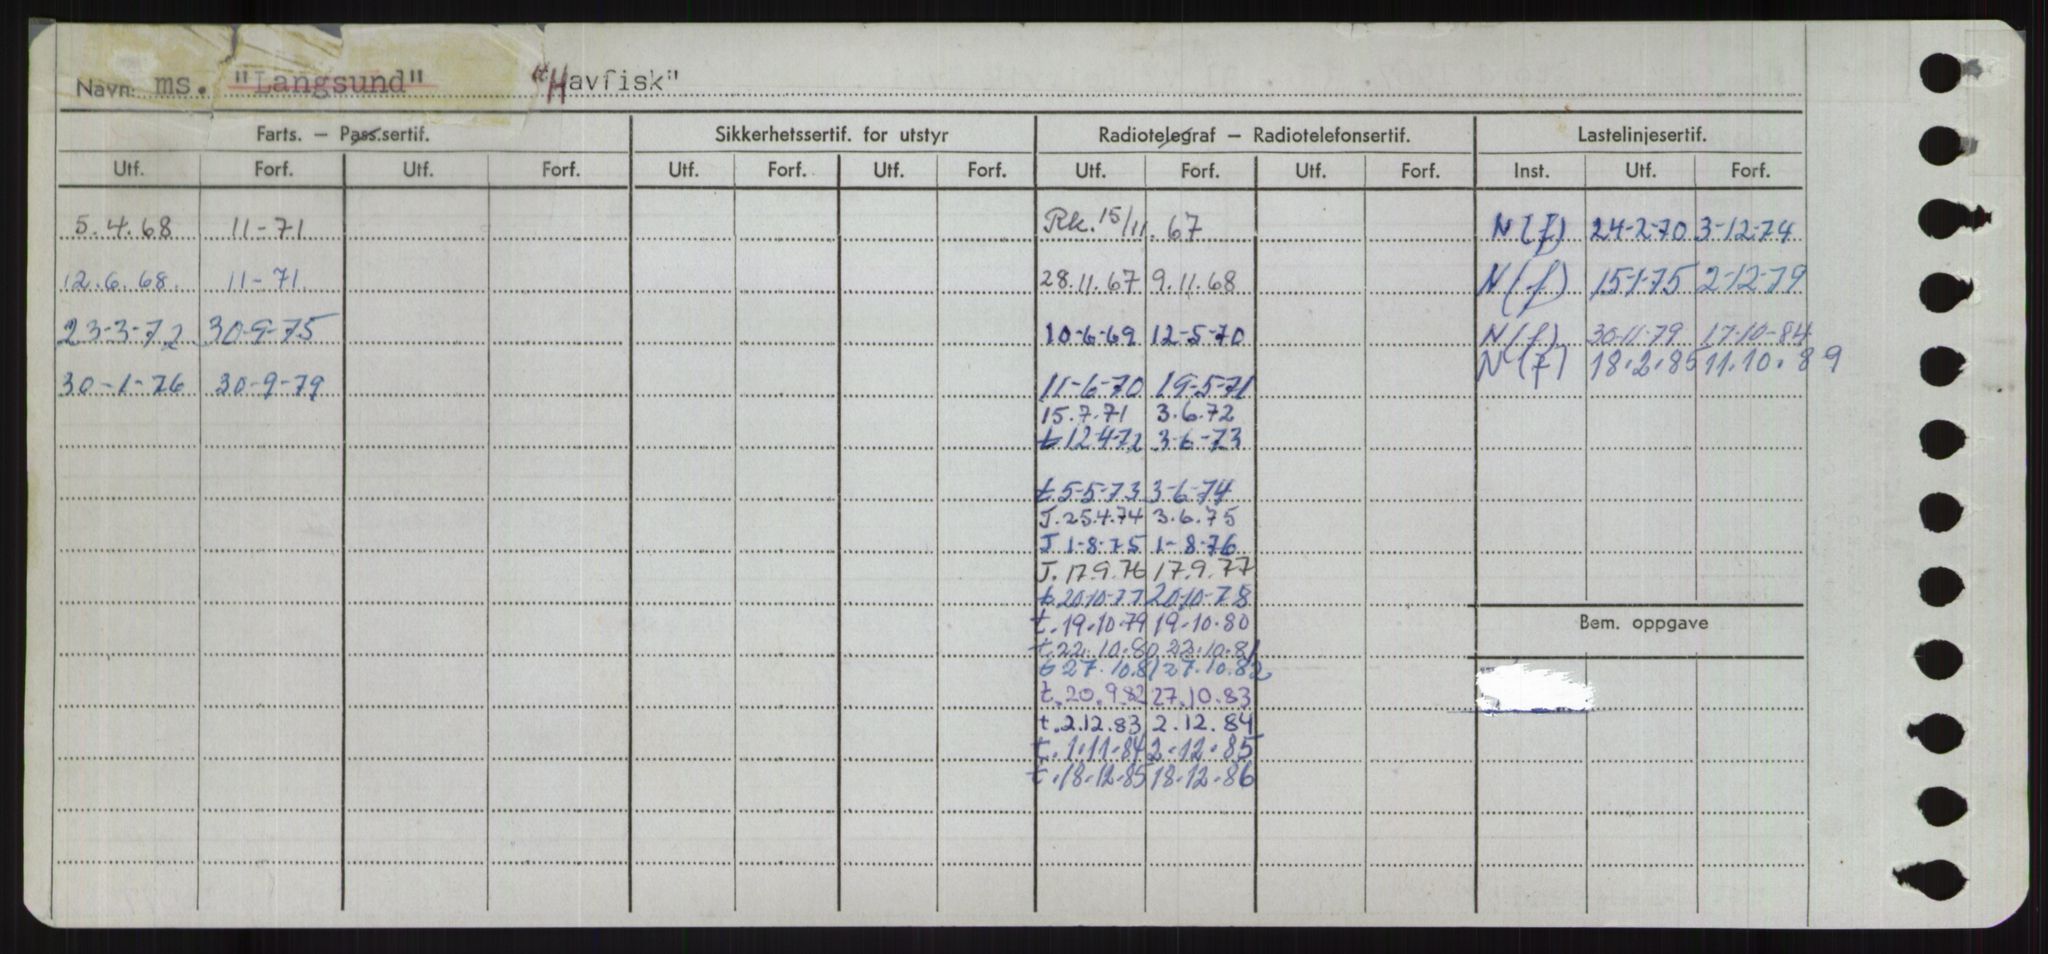 Navn: ms. "Langsund" "Havfisk"
Farts. – Pass.sertif. Sikkerhetssertif. for utstyr Radiotelegraf – Radiotelefonsertif. Lastelinjesertif.
Utf. Forf. Utf. Forf. Utf. Forf. Utf. Forf. Utf. Forf. Utf. Forf. Inst. Utf. Forf.
5.4.68 11-71 Rk. 15/11.67 N(f) 24-2-70 3-12-74
12.6.68. 11-71 28.11.67 9.11.68 N(f) 15-1-75 2-12-79
23-3-72 30-9-75 10-6-69 12-5-70 N(f) 30-11-79 17-10-84
N(f) 18.2.85 11.10.89
30-1-76 30-9-79 11-6-70 19-5-71
15.7.71 3.6.72
t 12-4-72 3-6-73
t 5-5-73 3-6-74
J. 25.4.74 3.6.75
J 1-8-75 1-8-76
J. 17.9.76 17.9.77
t 20-10-77 20-10-78
t. 19.10.79 19.10.80
t. 22.10.80 22.10.81
t 27.10.81 27.10.82
t. 20.9.82 27.10.83
t. 2.12.83 2.12.84
t. 1.11.84 2.12.85
t. 18.12.85 18.12.86
Bem. oppgave